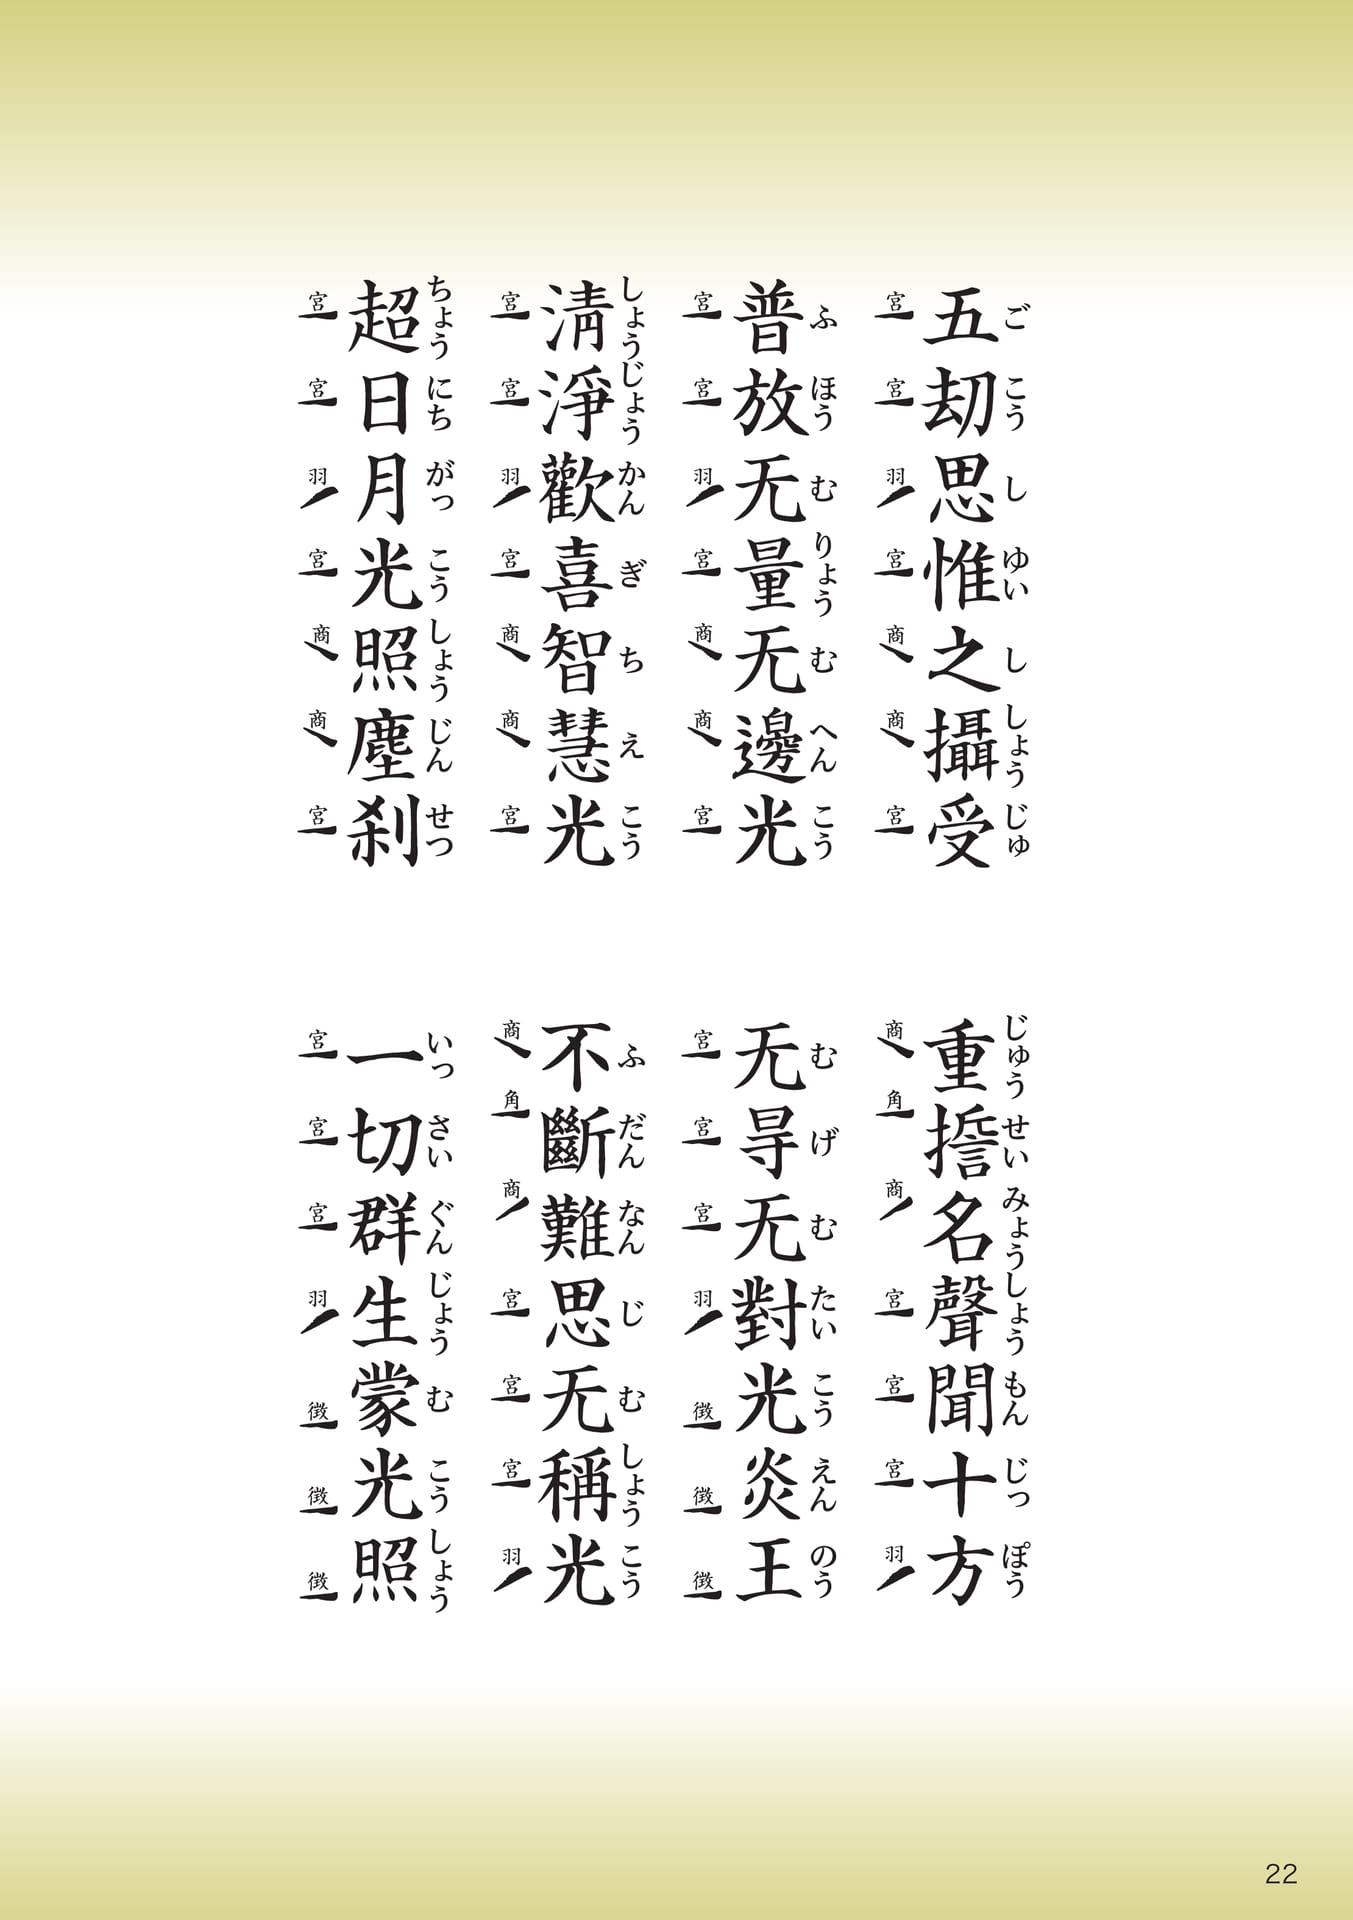 ごこうしゆいししょうじゅ
五劫思惟之攝受
宮宮羽宮商商宮
じゅうせいみょうしょうもんじっぽう
重誓名聲聞十方
商角商宮宮宮羽
ふほうむりょうむへんこう
普放无量无邊光
宮宮羽宮商商宮
むげむたいこうえんのう
无㝵无對光炎王
宮宮宮羽徴徴徴
しょうじょうかんぎちえこう
淸淨歡喜智慧光
宮宮羽宮商商宮
ふだんなんじむしょうこう
不斷難思无稱光
商角商宮宮宮羽
ちょうにちがっこうしょうじんせつ
超日月光照塵刹
宮宮羽宮商商宮
いっさいぐんじょうむこうしょう
一切群生蒙光照
宮宮宮羽徴徴徴
22